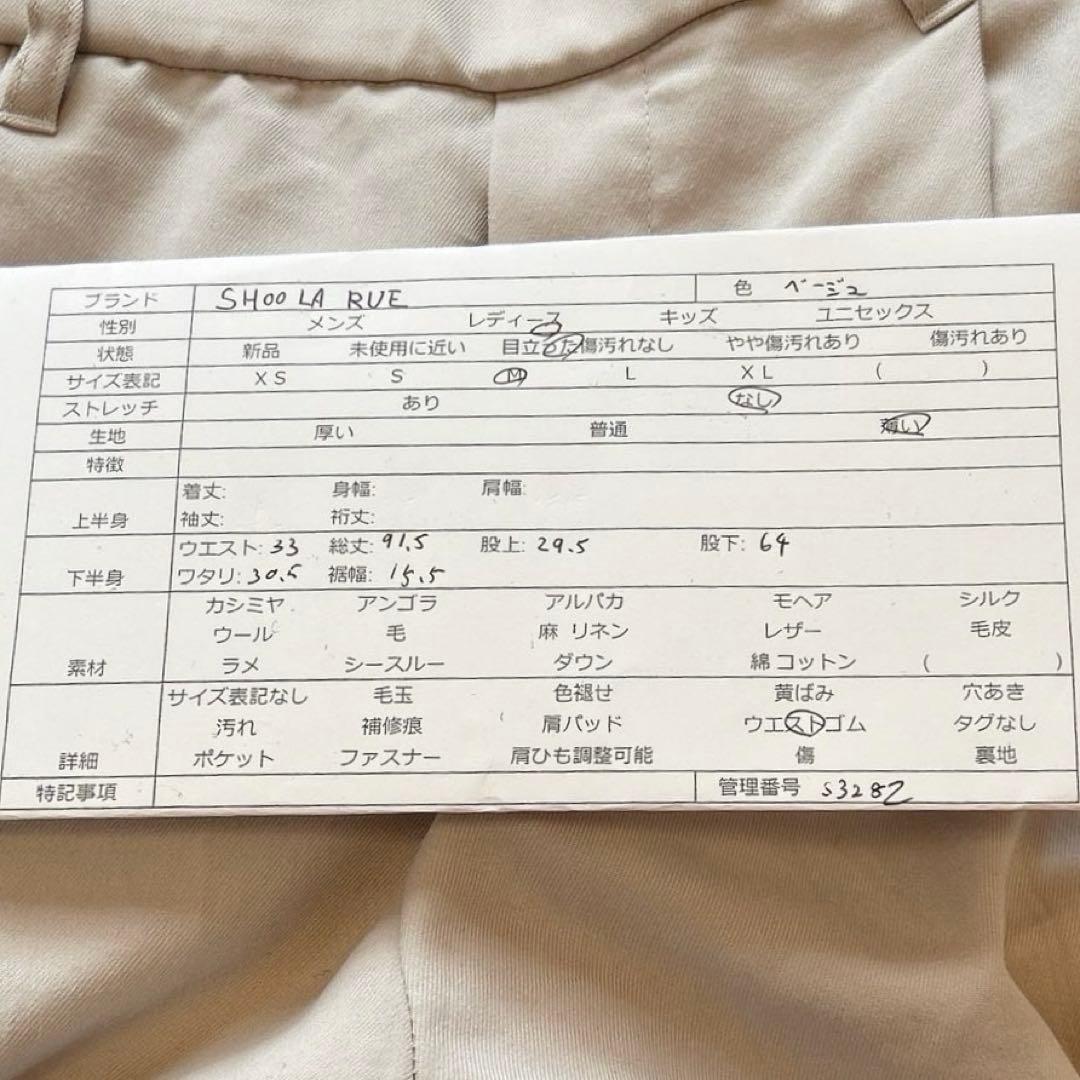 ブランド SHOO LA RUE 色 ベージュ
性別 メンズ レディース キッズ ユニセックス
状態 新品 未使用に近い 目立った傷汚れなし やや傷汚れあり 傷汚れあり
サイズ表記 XS S M L XL ( )
ストレッチ あり なし
生地 厚い 普通 薄い
特徴
着丈: 身幅: 肩幅:
上半身 袖丈: 裄丈:
ウエスト: 33 総丈: 91.5 股上: 29.5 股下: 64
下半身 ワタリ: 30.5 裾幅: 15.5
カシミヤ アンゴラ アルパカ モヘア シルク
ウール 毛 麻 リネン レザー 毛皮
素材 ラメ シースルー ダウン 綿 コットン ( )
サイズ表記なし 毛玉 色褪せ 黄ばみ 穴あき
汚れ 補修痕 肩パッド ウエストゴム タグなし
詳細 ポケット ファスナー 肩ひも調整可能 傷 裏地
特記事項 管理番号 S3282